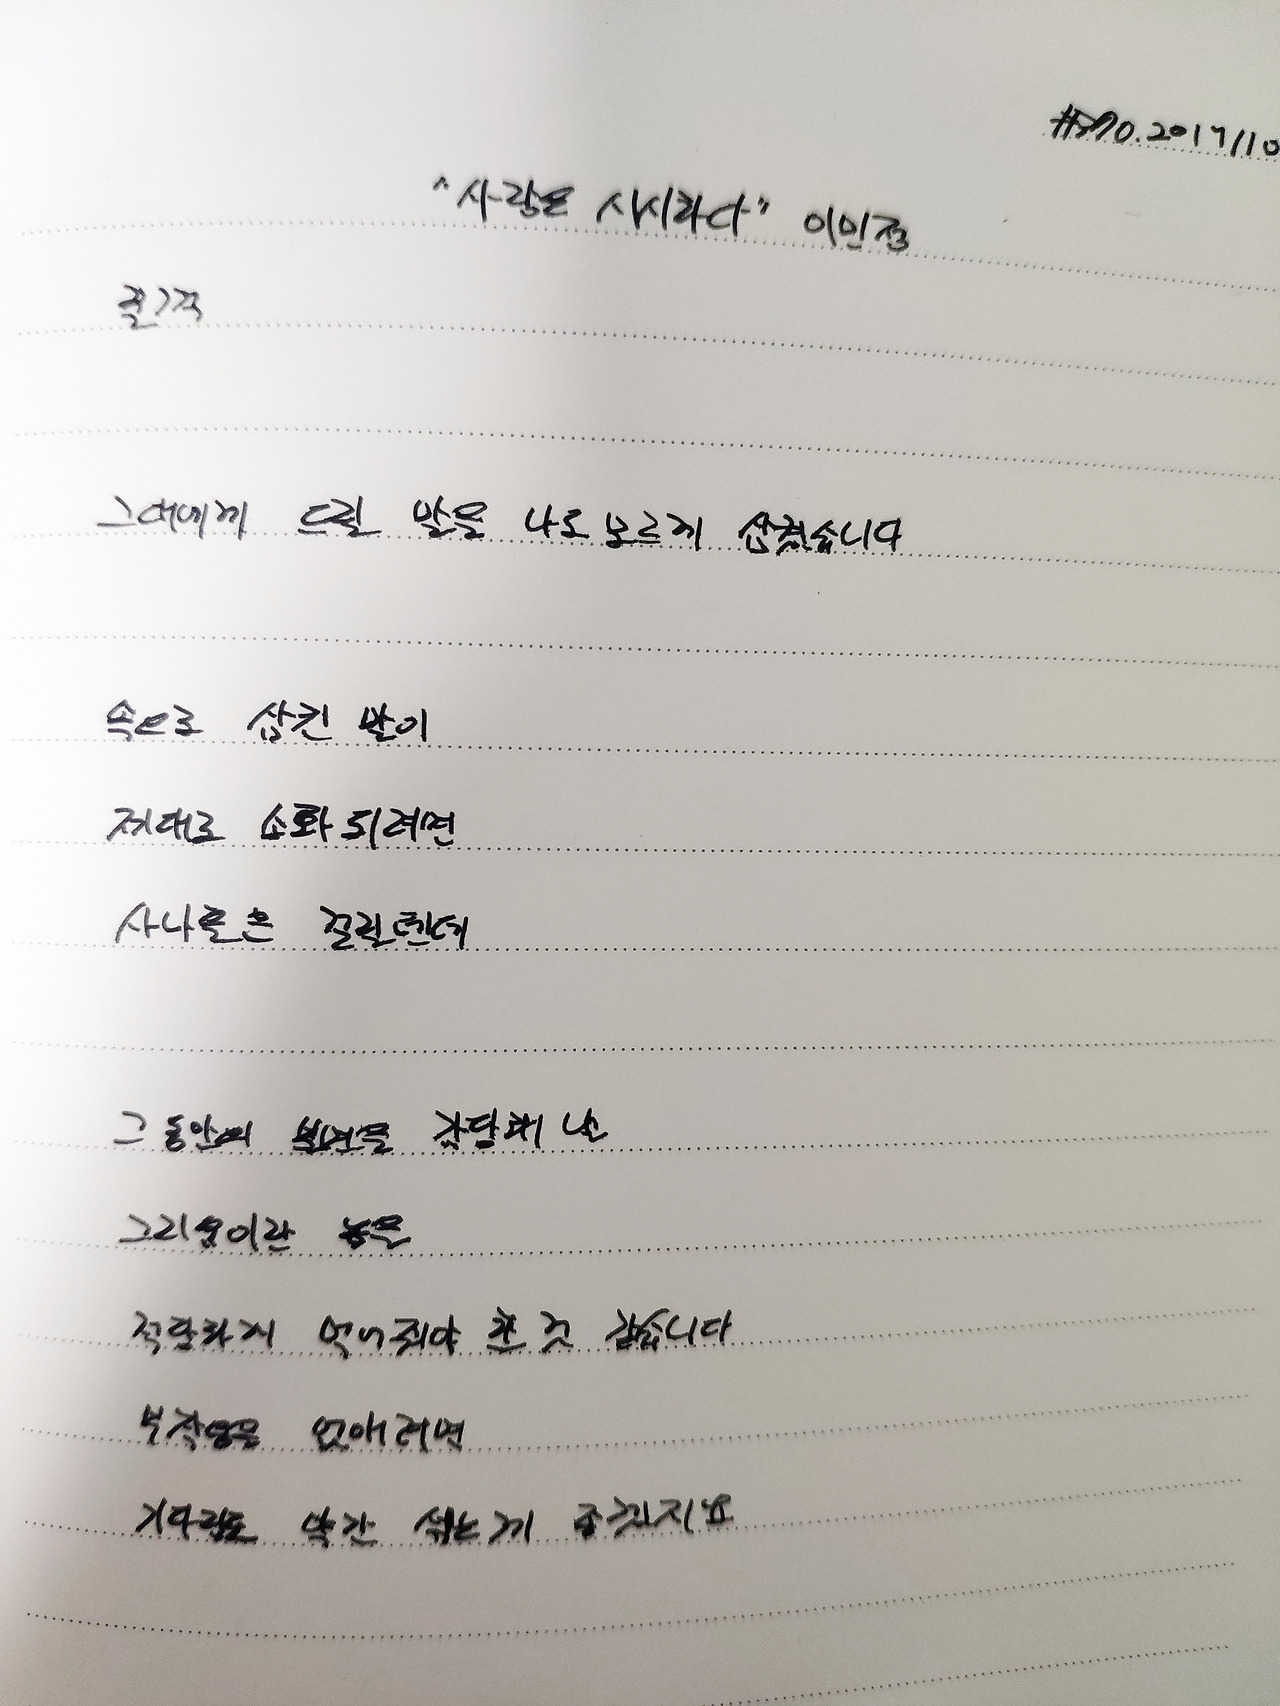 #370. 2017/10
"사랑은 시시하다" 이민정
줄기각
그대에게 드릴 말을 나도 모르게 삼켰습니다
속으로 삼킨 말이
제대로 소화되려면
사나흘은 걸릴텐데
그 동안에 감당해 낼
그리움이란 놈을
적당하게 먹어줘야 할 것 같습니다
부작용을 없애려면
기다림도 약간 섞는게 좋겠지요